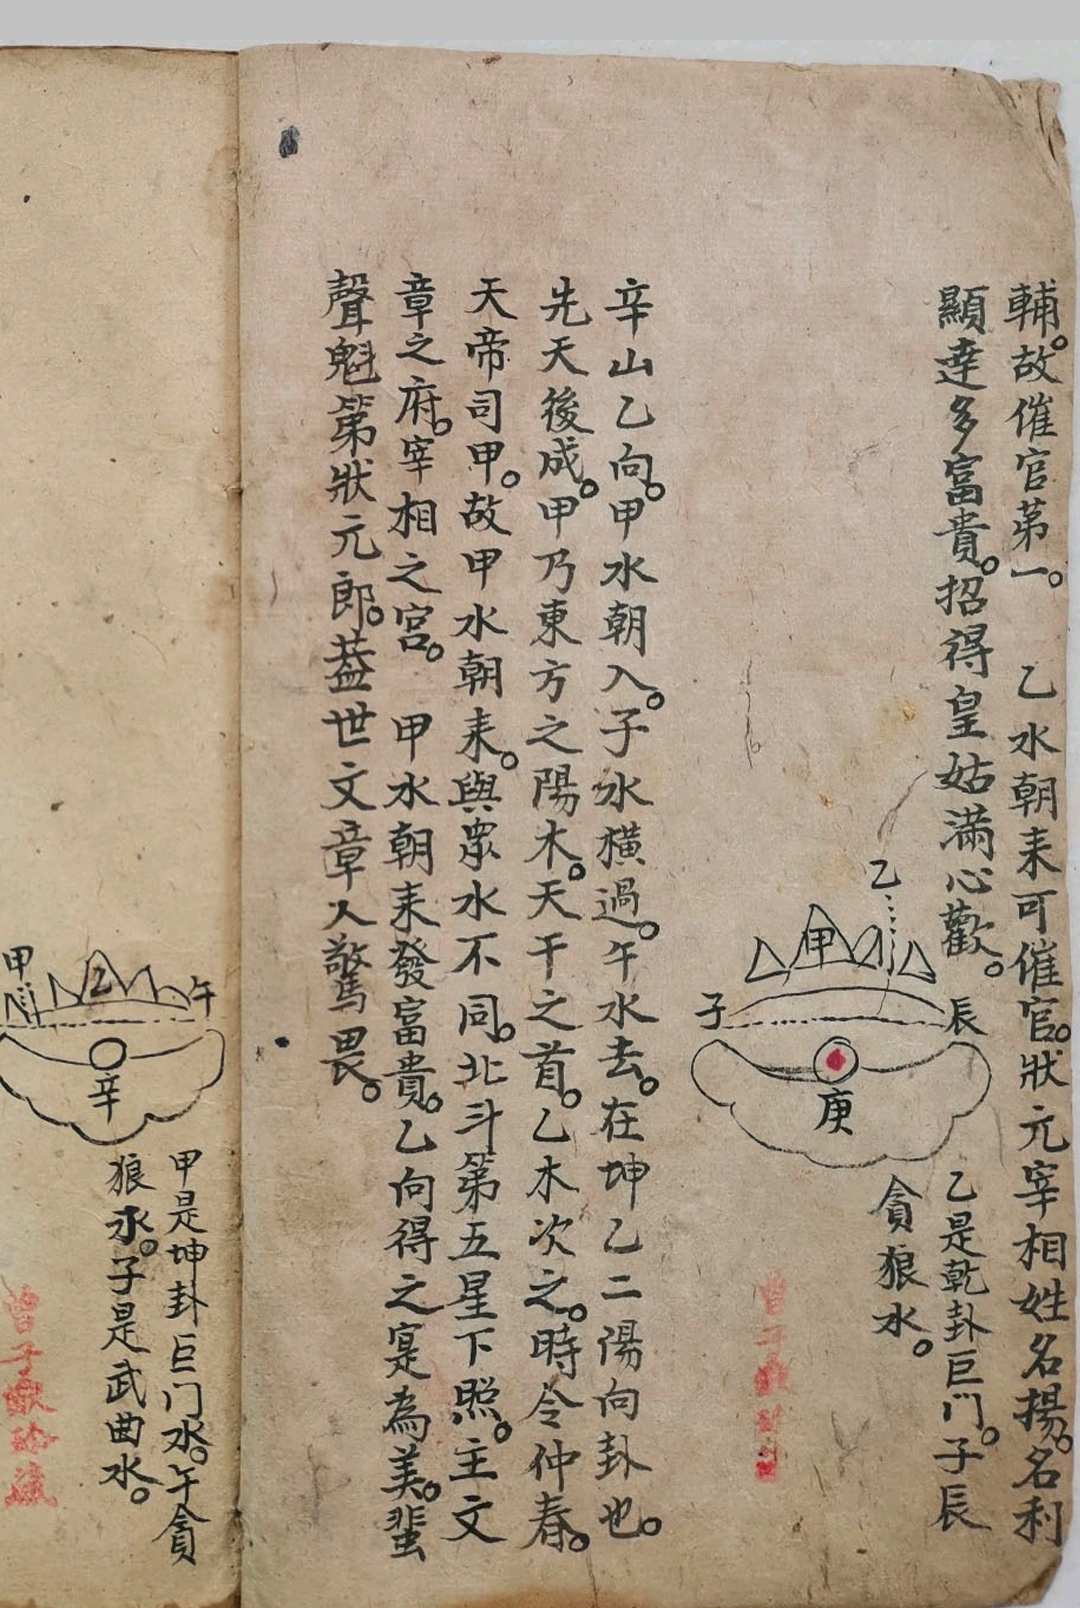 輔。故催官第一。　乙水朝来可催官。狀元宰相姓名揚。名利
顯達多富貴。招得皇姑滿心歡。
乙
甲
子
辰
庚
乙是乾卦巨门。子辰
貪狼水。
辛山乙向。甲水朝入。子水橫過。午水去。在坤乙二陽向卦也。
先天後成。甲乃東方之陽木。天干之首。乙木次之。時令仲春。
天帝司甲。故甲水朝来。與眾水不同。北斗第五星下照。主文
章之府。宰相之宮。　甲水朝来發富貴。乙向得之寔為美。蜚
聲魁第狀元郎。葢世文章人驚畏。
甲
乙
午
辛
甲是坤卦巨门水。午貪
狼水。子是武曲水。
曾子